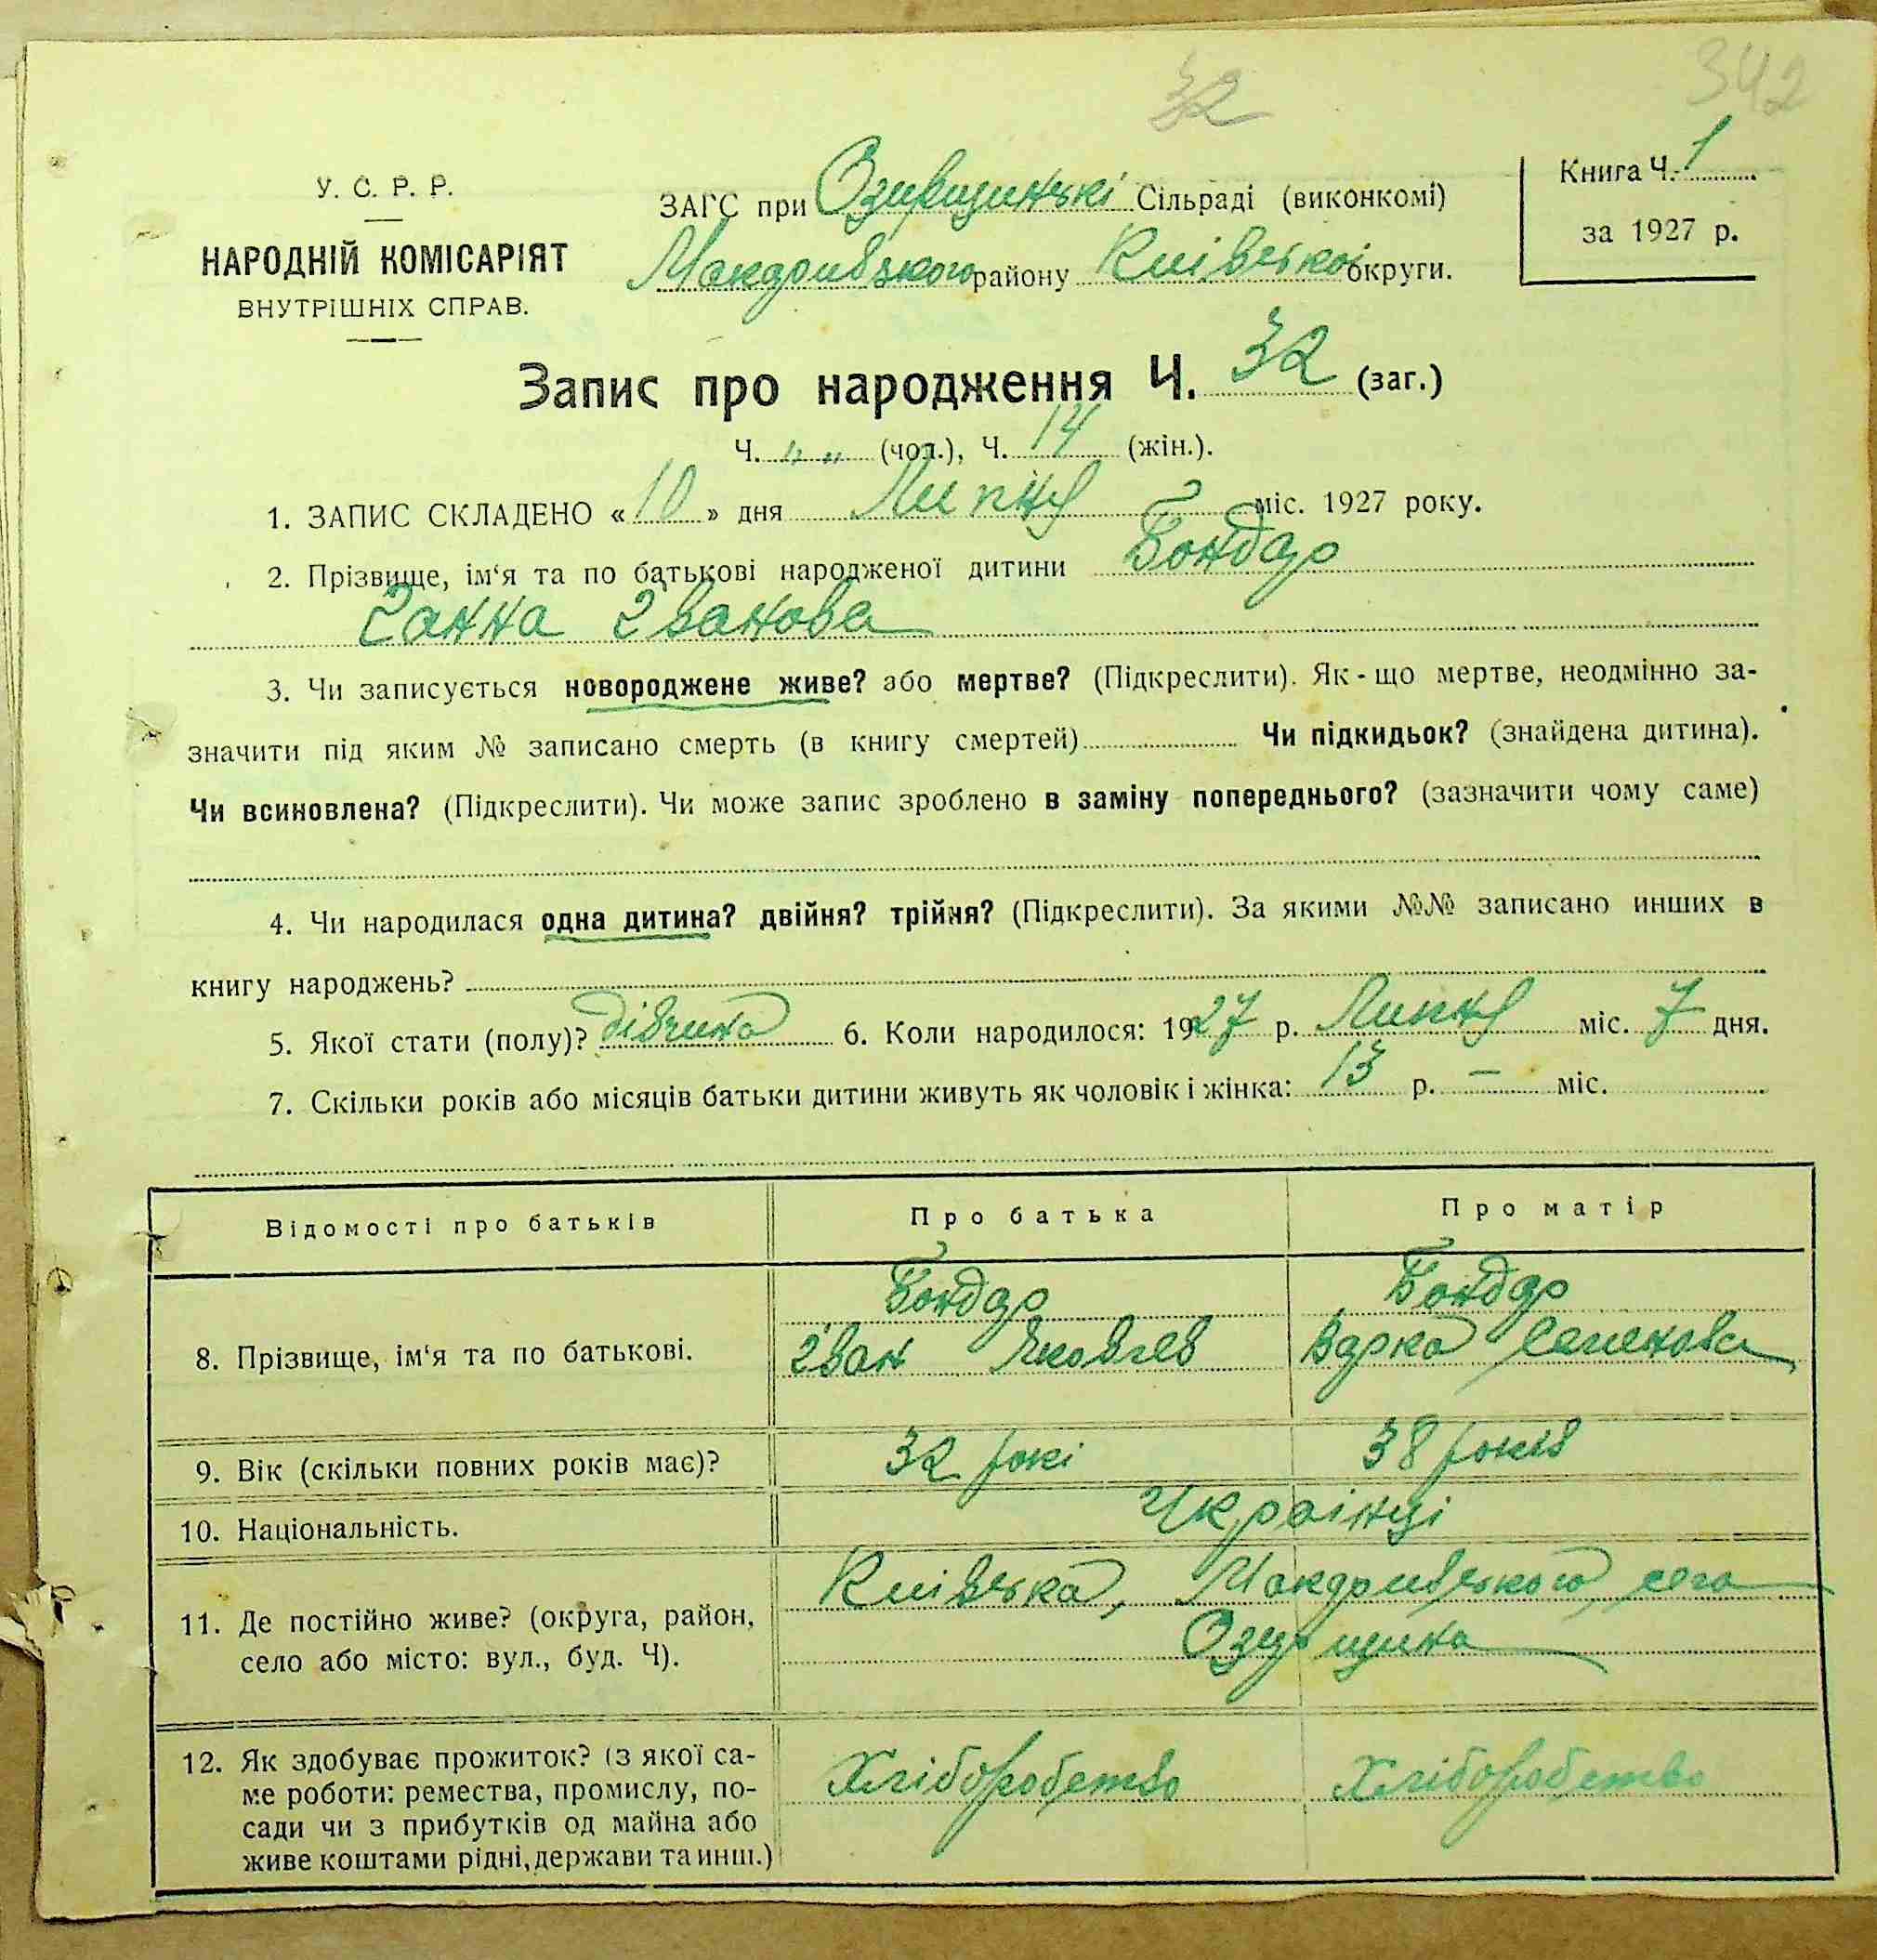 32
342
У. С. Р. Р.
НАРОДНІЙ КОМІСАРІЯТ
ВНУТРІШНІХ СПРАВ.
ЗАГС при Озирщинські Сільраді (виконкомі)
Макарівського району Київської округи.
Книга Ч. 1
за 1927 р.
Запис про народження Ч. 32 (заг.)
Ч. „ „ (чол.), Ч. 14 (жін.).
1. ЗАПИС СКЛАДЕНО «10» дня Липня міс. 1927 року.
2. Прізвище, ім‘я та по батькові народженої дитини Бондар
Ганна Іванова
3. Чи записується новороджене живе? або мертве? (Підкреслити). Як-що мертве, неодмінно за-
значити під яким № записано смерть (в книгу смертей) Чи підкидьок? (знайдена дитина).
Чи всиновлена? (Підкреслити). Чи може запис зроблено в заміну попереднього? (зазначити чому саме)
4. Чи народилася одна дитина? двійня? трійня? (Підкреслити). За якими №№ записано инших в
книгу народжень?
5. Якої стати (полу)? дівчина 6. Коли народилося: 1927 р. Липня міс. 7 дня.
7. Скільки років або місяців батьки дитини живуть як чоловік і жінка: 13 р. – міс.
Відомості про батьків Про батька Про матір
Бондар Бондар
8. Прізвище, ім‘я та по батькові. Іван Яковлев Варка Семенова
9. Вік (скільки повних років має)? 32 роки 38 років
10. Національність. Українці
Київська, Макарівського, село
11. Де постійно живе? (округа, район,
Озирщина
село або місто: вул., буд. Ч).
12. Як здобуває прожиток? (з якої са-
ме роботи: ремества, промислу, по- Хліборобство Хліборобство
сади чи з прибутків од майна або
живе коштами рідні, держави та инш.)